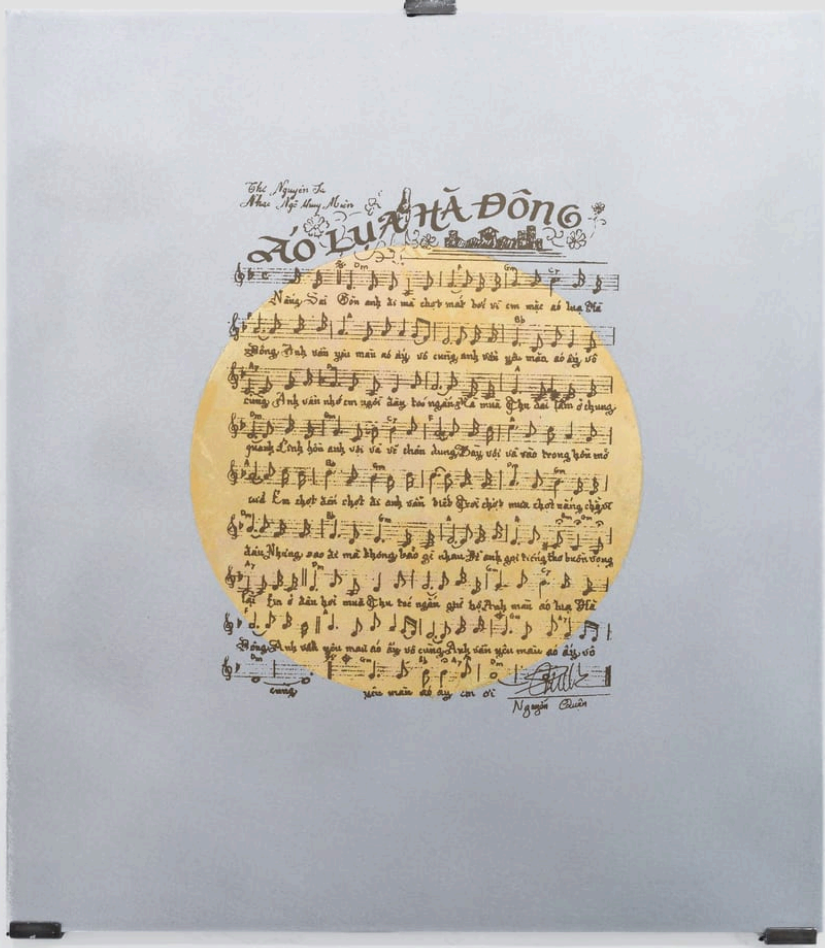 Thơ Nguyên Sa
Nhạc Ngô Thụy Miên
ÁO LỤA HÀ ĐÔNG
Nắng Sài Gòn anh đi mà chợt mát bởi vì em mặc áo lụa Hà
Đông Anh vẫn yêu màu áo ấy vô cùng anh vẫn yêu màu áo ấy vô
cùng Anh vẫn nhớ em ngồi đây tóc ngắn mà mùa Thu dài lắm ở chung
quanh Linh hồn anh vội vã vẽ chân dung Bày vội vã vào trong hồn mở
cửa Em chợt đến chợt đi anh vẫn biết Trời chợt mưa chợt nắng chợt vì
đâu Nhưng sao đi mà không bảo gì nhau Để anh gọi tiếng thơ buồn vọng
lại Em ở đâu hỡi mùa Thu tóc ngắn giữ hộ Anh màu áo lụa Hà
Đông Anh vẫn yêu màu áo ấy vô cùng Anh vẫn yêu màu áo ấy vô
cùng yêu màu áo ấy em ơi
Nguyễn Quân